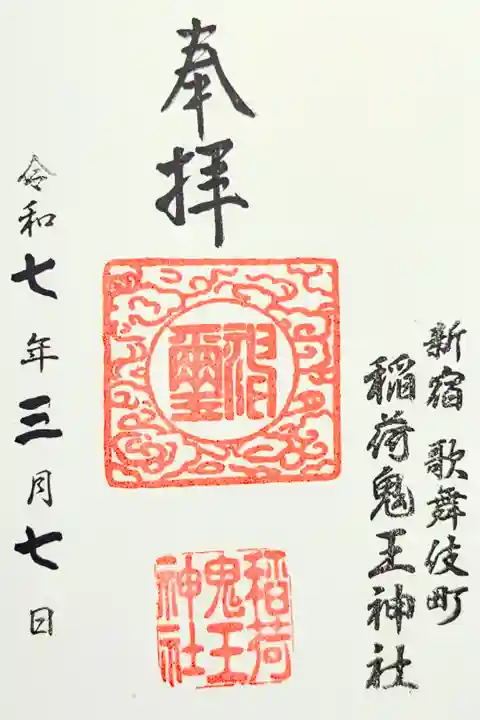 新宿 歌舞伎町
稲荷鬼王神社
奉拝
神璽
稲荷
鬼王
神社
令和七年三月七日